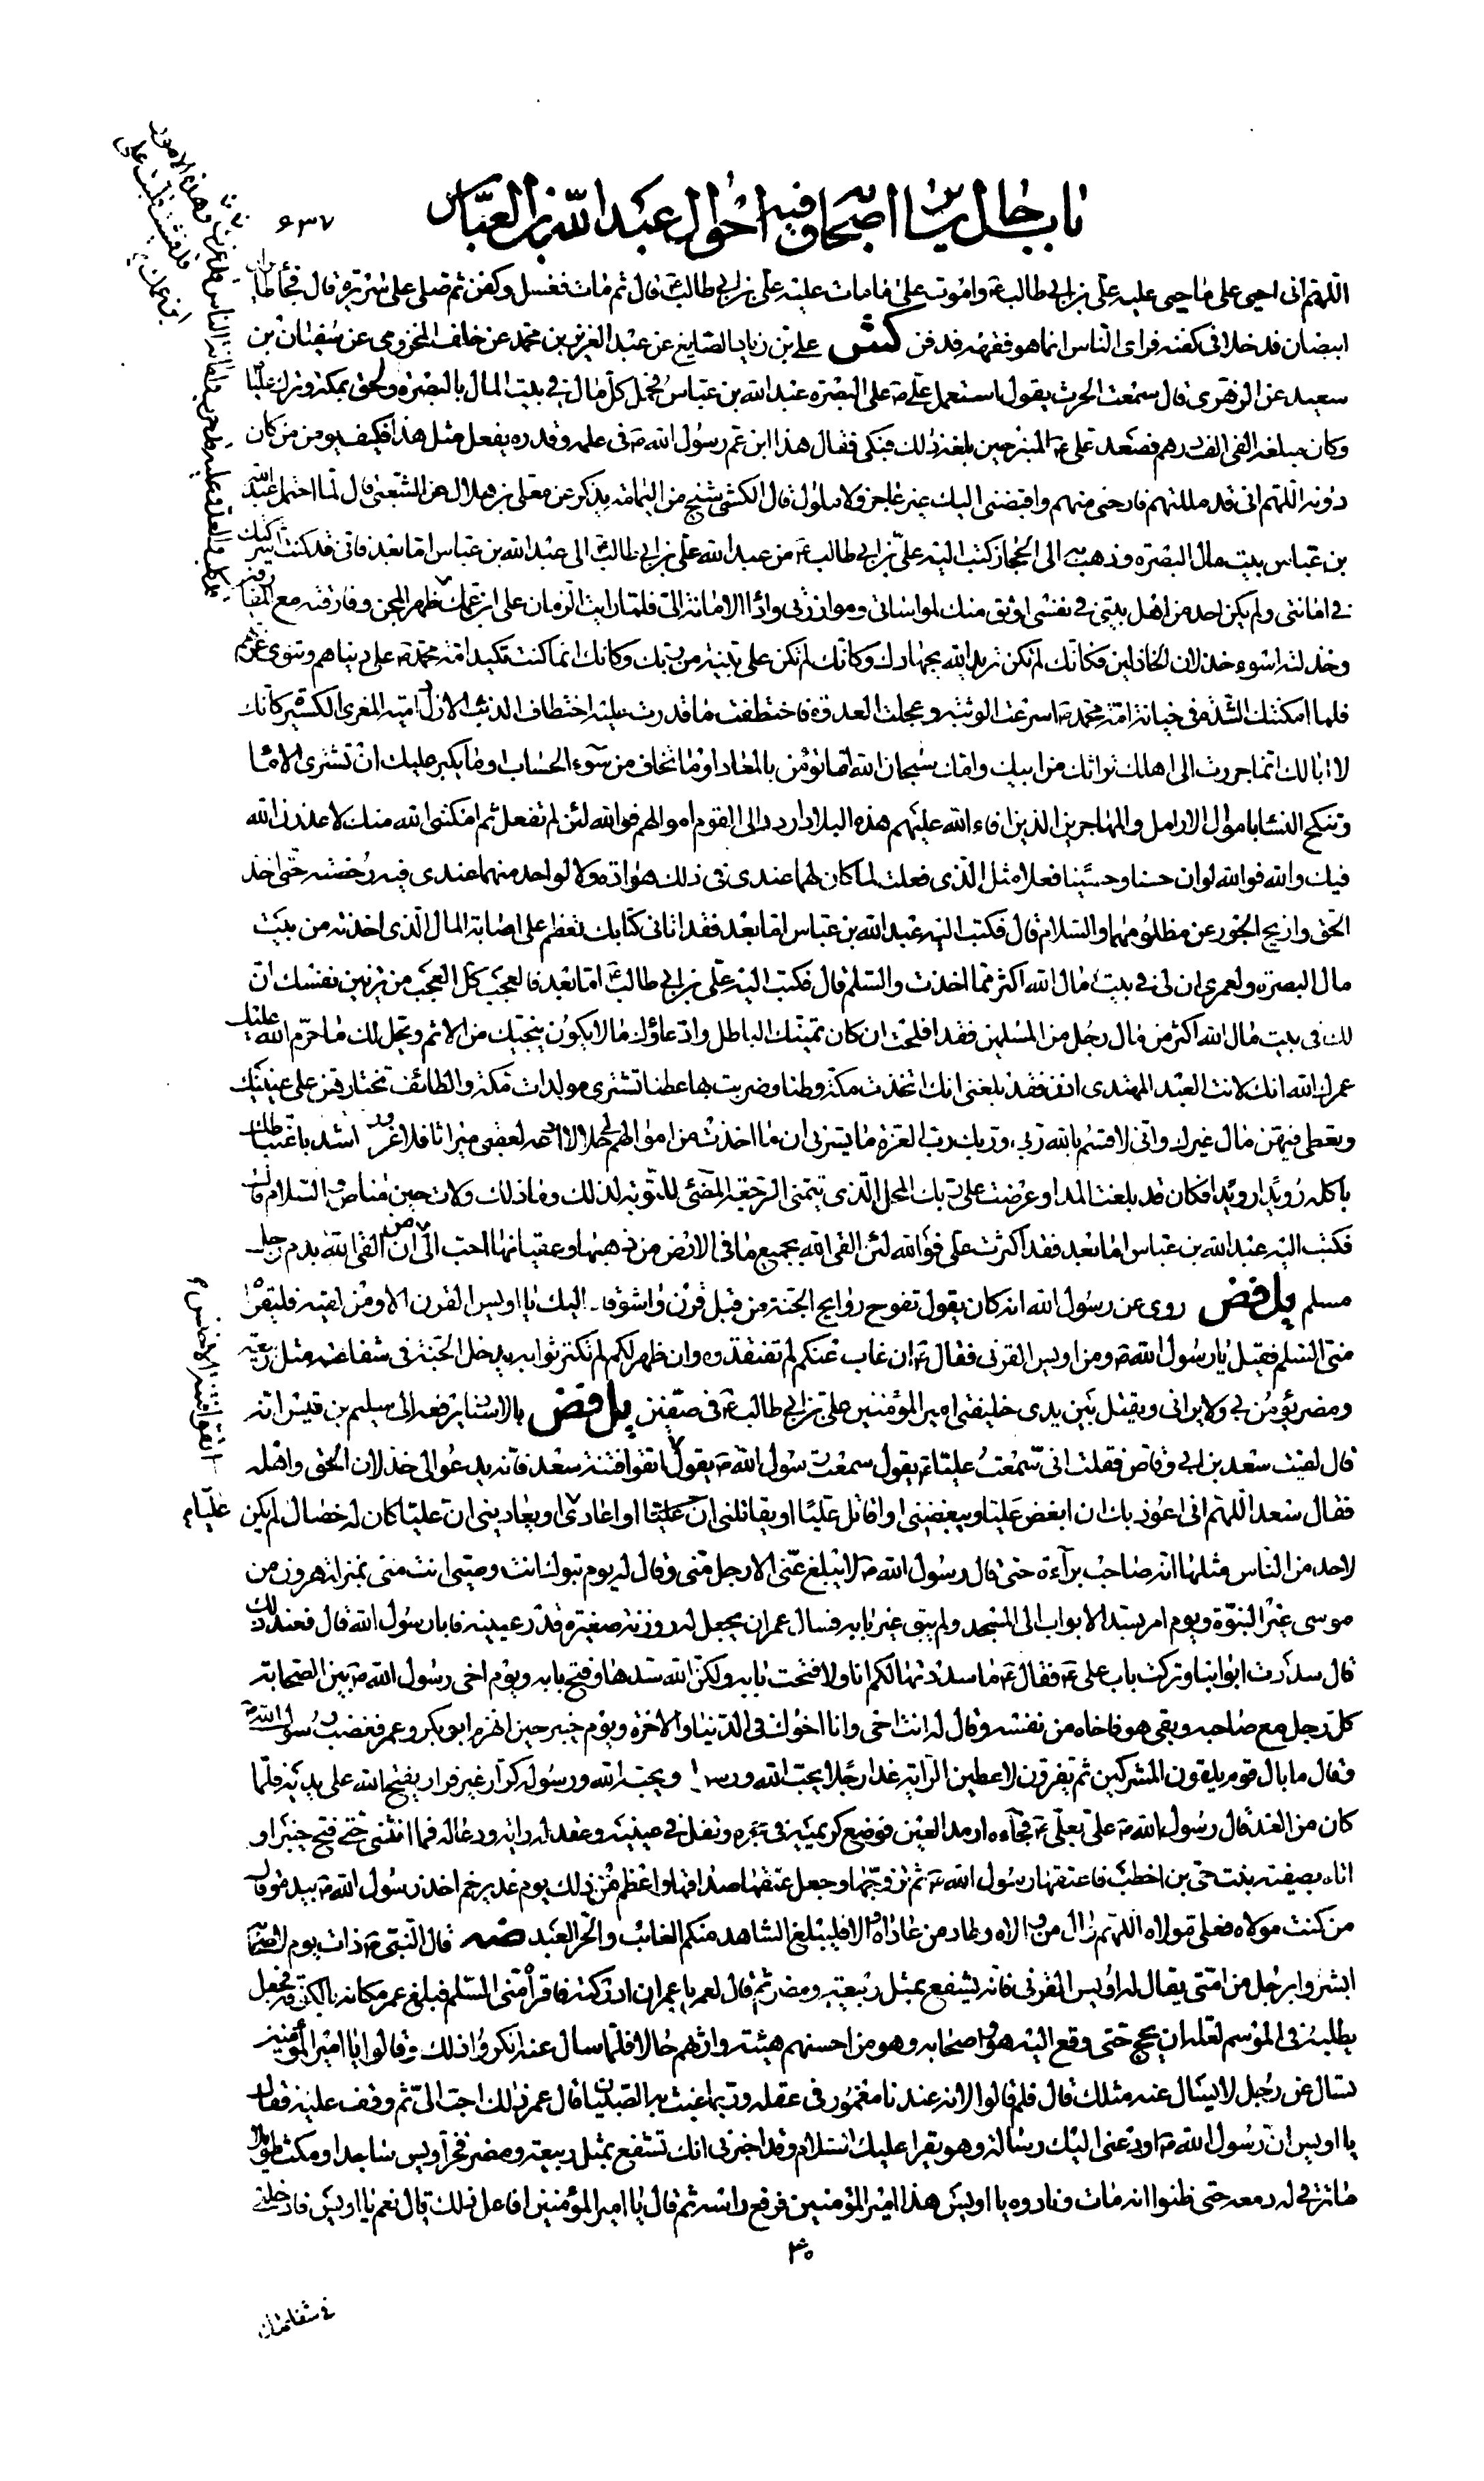 باب حال سائر اصحابه وفيه احوال عبد الله بن العباس
٦٣٧
اللهم اني احيي على ما حيي عليه علي بن ابي طالب ع واموت على ما مات عليه علي بن ابي طالب ع قال ثم مات فغسل وكفن ثم صلي على سريره قال فجاء طائران
ابيضان فدخلا في كفنه فراى الناس انما هو فقهه فدفن كش علي بن زياد الصايغ عن عبد العزيز بن محمد عن خلف المخزومي عن سفيان بن
سعيد عن الزهري قال سمعت الحرث يقول استعمل علي ع على البصرة عبد الله بن عباس فحمل كل مال في بيت المال بالبصرة ولحق بمكة وترك عليا
وكان مبلغه الفي الف درهم فصعد علي ع المنبر حين بلغه ذلك فبكى فقال هذا ابن عم رسول الله ص في علمه وقدره يفعل مثل هذا فكيف يومن من كان
دونه اللهم اني قد مللتهم فارحني منهم واقبضني اليك غير عاجز ولا ملول قال الكشي شيخ من اليمامة يذكر عن معلى بن هلال عن الشعبي قال لما احتمل عبد الله
بن عباس بيت مال البصرة وذهب به الى الحجاز كتب اليه علي بن ابي طالب ع من عبد الله علي بن ابي طالب ع الى عبد الله بن عباس اما بعد فاني قد كنت اشركتك
في امانتي ولم يكن احد من اهل بيتي في نفسي اوثق منك لمواساتي وموازرتي واداء الامانة الي فلما رايت الزمان على ابن عمك ظهر المجن وفارقته مع المفارقين
وخذلته اسوء خذلان الخاذلين فكانك لم تكن تريد الله بجهادك وكانك لم تكن على بينة من ربك وكانك انما كنت تكيد امة محمد ص على دنياهم وتنوي غرتهم
فلما امكنتك الشدة في خيانة امة محمد ص اسرعت الوثبة وعجلت العدوة فاختطفت ما قدرت عليه اختطاف الذئب الازل دامية المعزى الكسيرة كانك
لا ابا لك انما جررت الى اهلك تراثك من ابيك وامك سبحان الله اما تؤمن بالمعاد او ما تخاف من سوء الحساب او ما يكبر عليك ان تشتري الاماء
وتنكح النساء باموال الارامل والمهاجرين الذين افاء الله عليهم هذه البلاد اردد الى القوم اموالهم فوالله لئن لم تفعل ثم امكنني الله منك لاعذرن الله
فيك والله فوالله لو ان حسنا وحسينا فعلا مثل الذي فعلت لما كان لهما عندي في ذلك هوادة ولا لواحد منهما عندي فيه رخصة حتى اخذ
الحق وازيح الجور عن مظلومهما والسلام قال فكتب اليه عبد الله بن عباس اما بعد فقد اتاني كتابك تعظم على اصابة المال الذي اخذته من بيت
مال البصرة ولعمري ان لي في بيت مال الله اكثر مما اخذت والسلم قال فكتب اليه علي بن ابي طالب ع اما بعد فالعجب كل العجب من تزيين نفسك ان
لك في بيت مال الله اكثر من مال رجل من المسلمين فقد افلحت ان كان تمنيك الباطل وادعاؤك ما لا يكون ينجيك من الاثم ويحل لك ما حرم الله عليك
عمرك الله انك لانت العبد المهتدي اذن فقد بلغني انك اتخذت مكة وطنا وضربت بها عطنا تشتري مولدات مكة والطائف تختارهن على عينيك
وتعطي فيهن مال غيرك واني لاقسم بالله ربي وربك رب العزة ما يسرني ان ما اخذت من اموالهم لي حلالا ادعه لعقبي ميراثا فلا غرو اشد باغتباطك
باكله رويدا رويدا فكان قد بلغت المدا وعرضت على ربك المحل الذي تتمنى الرجعة المضيع للتوبة لذلك وما ذلك ولات حين مناص والسلام قال
فكتب اليه عبد الله بن عباس اما بعد فقد اكثرت علي فوالله لئن القى الله بجميع ما في الارض من ذهبها وعقيانها احب الي من ان القى الله بدم رجل
مسلم يل فض روي عن رسول الله انه كان يقول تفوح روايح الجنة من قبل قرن واشوقا اليك يا اويس القرن الا ومن لقيه فليقرئه
مني السلم فقيل يا رسول الله ص ومن اويس القرني فقال ص ان غاب عنكم لم تفتقدوه وان ظهر لكم لم تكترثوا به يدخل الجنة في شفاعته مثل ربيعة
ومضر يؤمن بي ولا يراني ويقتل بين يدي خليفتي امير المؤمنين علي بن ابي طالب ع في صفين يل فض بالاسناد يرفعه الى سليم بن قيس انه
قال لقيت سعد بن ابي وقاص فقلت اني سمعت عليا ع يقول سمعت رسول الله ص يقول اتقوا فتنة سعد فانه يدعو الى خذلان الحق واهله
فقال سعد اللهم اني اعوذ بك ان ابغض عليا ويبغضني او اقاتل عليا او يقاتلني او اعادي عليا او يعاديني ان عليا كان له خصال لم يكن
لاحد من الناس مثلها انه صاحب براءة حتى قال رسول الله ص لا يبلغ عني الا رجل مني وقال له يوم تبوك انت وصيي انت مني بمنزلة هرون من
موسى غير النبوة ويوم امر بسد الابواب الى المسجد ولم يبق غير بابه فسال عمر ان يجعل له روزنة صغيرة قدر عينيه فابا رسول الله قال فعند ذلك
قال سددت ابوابنا وتركت باب علي ع فقال ص ما سددتها لكم انا ولا فتحت بابه ولكن الله سدها وفتح بابه ويوم اخى رسول الله ص بين الصحابة
كل رجل مع صاحبه وبقي هو فاخاه من نفسه وقال له انت اخي وانا اخوك في الدنيا والاخرة ويوم خيبر حين انهزم ابو بكر وعمر فغضب رسول الله ص
وقال ما بال قوم يلقون المشركين ثم يفرون لاعطين الراية غدا رجلا يحب الله ورسوله ويحبه الله ورسوله كرار غير فرار يفتح الله على يديه فلما
كان من الغد قال رسول الله ص علي بعلي ع فجاءه ارمد العين فوضع كريمته في حجره وتفل في عينيه وعقد له راية ودعا له فما انثنى حتى فتح خيبر او
اتاه بصفية بنت حي بن اخطب فاعتقها رسول الله ص ثم تزوجها وجعل عتقها صداقها واعظم من ذلك يوم غدير خم اخذ رسول الله ص بيده وقال
من كنت مولاه فعلي مولاه اللهم وال من والاه وعاد من عاداه الا فليبلغ الشاهد منكم الغائب والحر العبد ضه قال النبي ص ذات يوم لاصحابه
ابشروا برجل من امتي يقال له اويس القرني فانه يشفع بمثل ربيعة ومضر ثم قال لعمر يا عمر ان ادركته فاقراه مني السلم فبلغ عمر مكانه بالكوفة فجعل
يطلبه في الموسم لعله ان يحج حتى وقع اليه هو واصحابه وهو من احسنهم هيئة وارثهم حالا فلما سال عنه انكروا ذلك وقالوا يا امير المؤمنين
تسال عن رجل لا يسال عنه مثلك قال فلم قالوا لانه عندنا مغمور في عقله وربما عبث به الصبيان قال عمر ذلك احب الي ثم وقف عليه فقال
يا اويس ان رسول الله ص اودعني اليك رسالة وهو يقرا عليك السلام وقد اخبرني انك تشفع بمثل ربيعة ومضر فخر اويس ساجدا ومكث طويلا
ما ترقى له دمعة حتى ظنوا انه مات ونادوه يا اويس هذا امير المؤمنين فرفع راسه ثم قال يا امير المؤمنين افاعل ذلك قال نعم يا اويس فادخلني
في شفاعتك